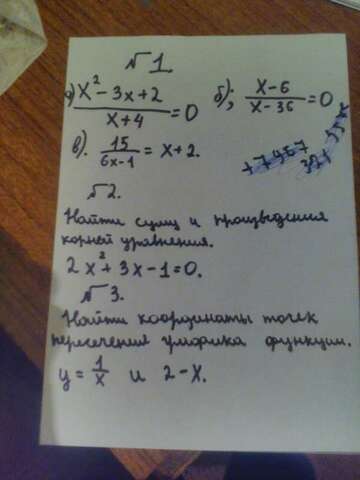 №1.
а) x² - 3x + 2 / x + 4 = 0 б); x - 6 / x - 36 = 0
в). 15 / 6x - 1 = x + 2.
№2.
Найти сумму и произведения
корней уравнения.
2x² + 3x - 1 = 0.
№3.
Найти координаты точек
пересечения графика функции.
y = 1/x и 2 - x.